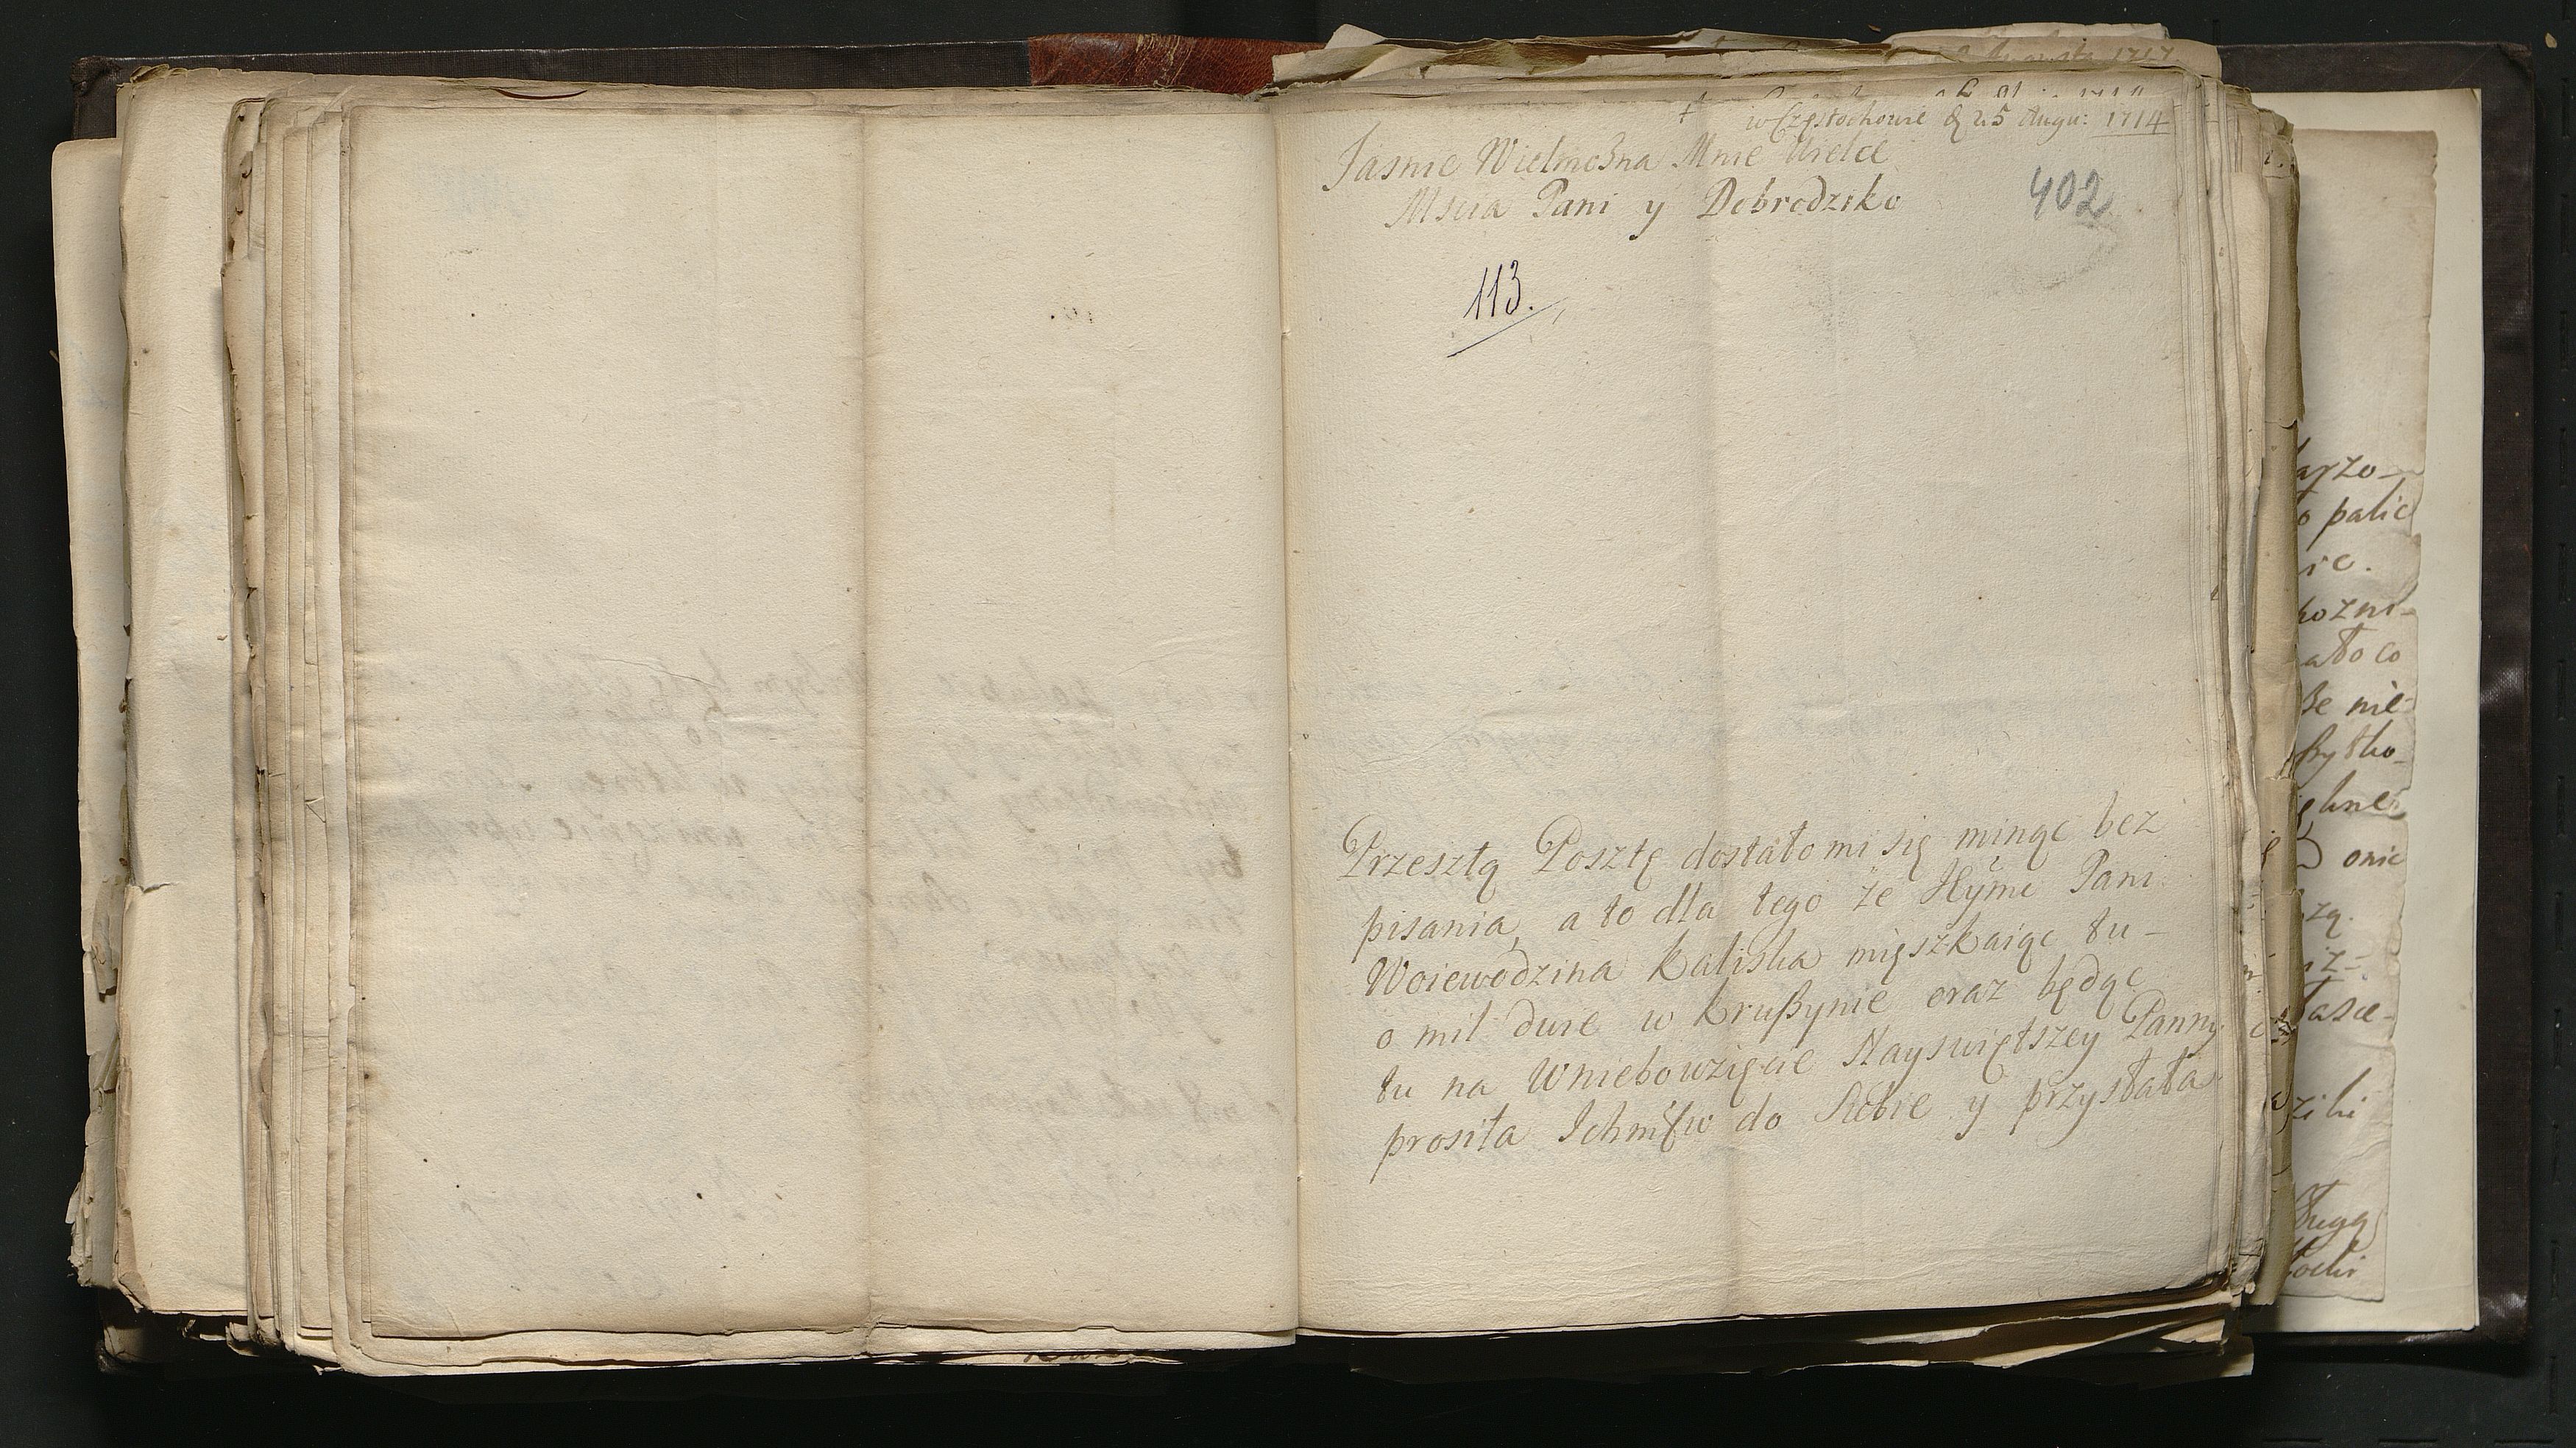 w Częstochowie d 25 Augu: 1714
Jasnie Wielmożna Mnie Wielce
Mscia Pani y Dobrodziko
402
113.
Przeszłą Posztę dostało mi się minąć bez
pisania, a to dla tego że Jeÿmć Pani
Woiewodzina Kaliska mięszkaiąc tu-
o mil dwie w Krußynie oraz będąc
tu na Wniebowzięcie Nayswiętszey Panny
prosiła Ichmśćiw do Siebie y przysłała
arzo-
o palic
ic.
ło co
że nie-
ßytko-
onie
zą.
łasce-
ziki